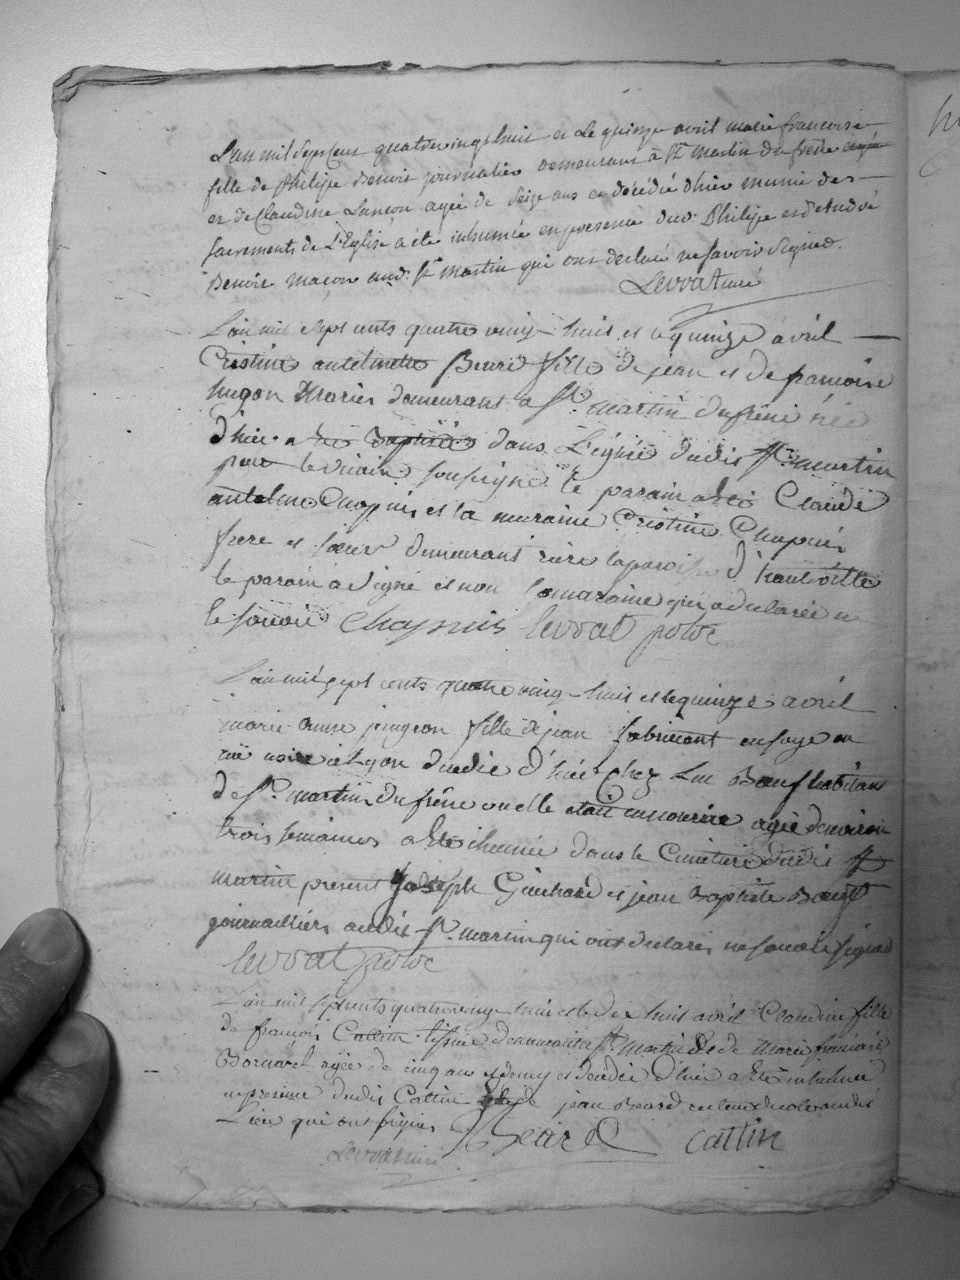 L'an mil Sept Cent quatre vingt huit et Le quinze avril marie francoise
fille de Philippe Benoit journalier demeurant à St martin du frêne
et de Claudine Lançon agée de Seize ans et décédée d'hier munie des
sacrements de L'Eglise a été inhumée en presence dud. Philippe et d'andré
Benoit maçon aud. St martin qui ont declaré ne savoir Signer.
Levrat curé
L'an mil Sept cents quatre vingt huit et le quinze avril
Cristine antelmette fille de jean et de francoise
hugon mariés demeurants a St martin du frene née
d'hier a été Baptisée dans L'église dudit St martin
par le vicaire soussigné le parain a été Claude
antelme Chapuis et la maraine Cristine Chapuis
frere et soeur demeurant rière la paroisse d'hautville
le parain a signé et non la maraine qui a declarée ne
le savoir Chapuis levrat
L'an mil sept cents quatre vingt huit et le quinze avril
marie anne fille de jean fabricant en soye en
rüe noire à Lyon décedée d'hier chez Luc Bœuf habitant
de St martin du frêne ou elle etait en nourrice agée d'environ
trois semaines a été inhumée dans le Cimetiere dudit St
martin present joseph Guichard et jean Baptiste
journalliers audit St martin qui ont declarés ne savoir signer
levrat
L'an mil sept cents quatre vingt huit et le dix huit avril Claudine fille
de françois Cattin demeurant à St martin et de Marie francoise
agée de cinq ans et demy et décédée d'hier a été inhumée
en presence dudit Cattin et de jean
Lieu qui ont signés Cattin
Levrat curé